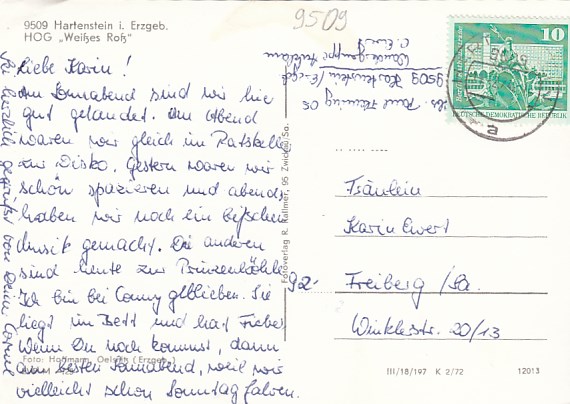 9509 Hartenstein i. Erzgeb.
HOG „Weißes Roß"
9509
Liebe Karin!
Am Sonnabend sind wir hier
gut gelandet. Am Abend
waren wir gleich im Ratskeller
zur Disko. Gestern waren wir
schön spazieren und abends
haben wir noch ein bißchen
Musik gemacht. Die anderen
sind heute zur Prinzenhöhle.
Ich bin bei Conny geblieben. Sie
liegt im Bett und hat Fieber.
Wenn Du noch kommst, dann
am besten Sonnabend, weil wir
vielleicht schon Sonntag fahren.
Sei herzlich gegrüßt von Deiner
Foto: Hoffmann, Oelsnitz (Erzgeb.)
Fotoverlag R. Kallmer, 95 Zwickau/Sa.
9509 Hartenstein/Erzgeb.
10
DEUTSCHE DEMOKRATISCHE REPUBLIK
a
Fräulein
Karin Ewert
92- Freiberg/Sa.
Winklerstr. 20/13
III/18/197 K 2/72 12013